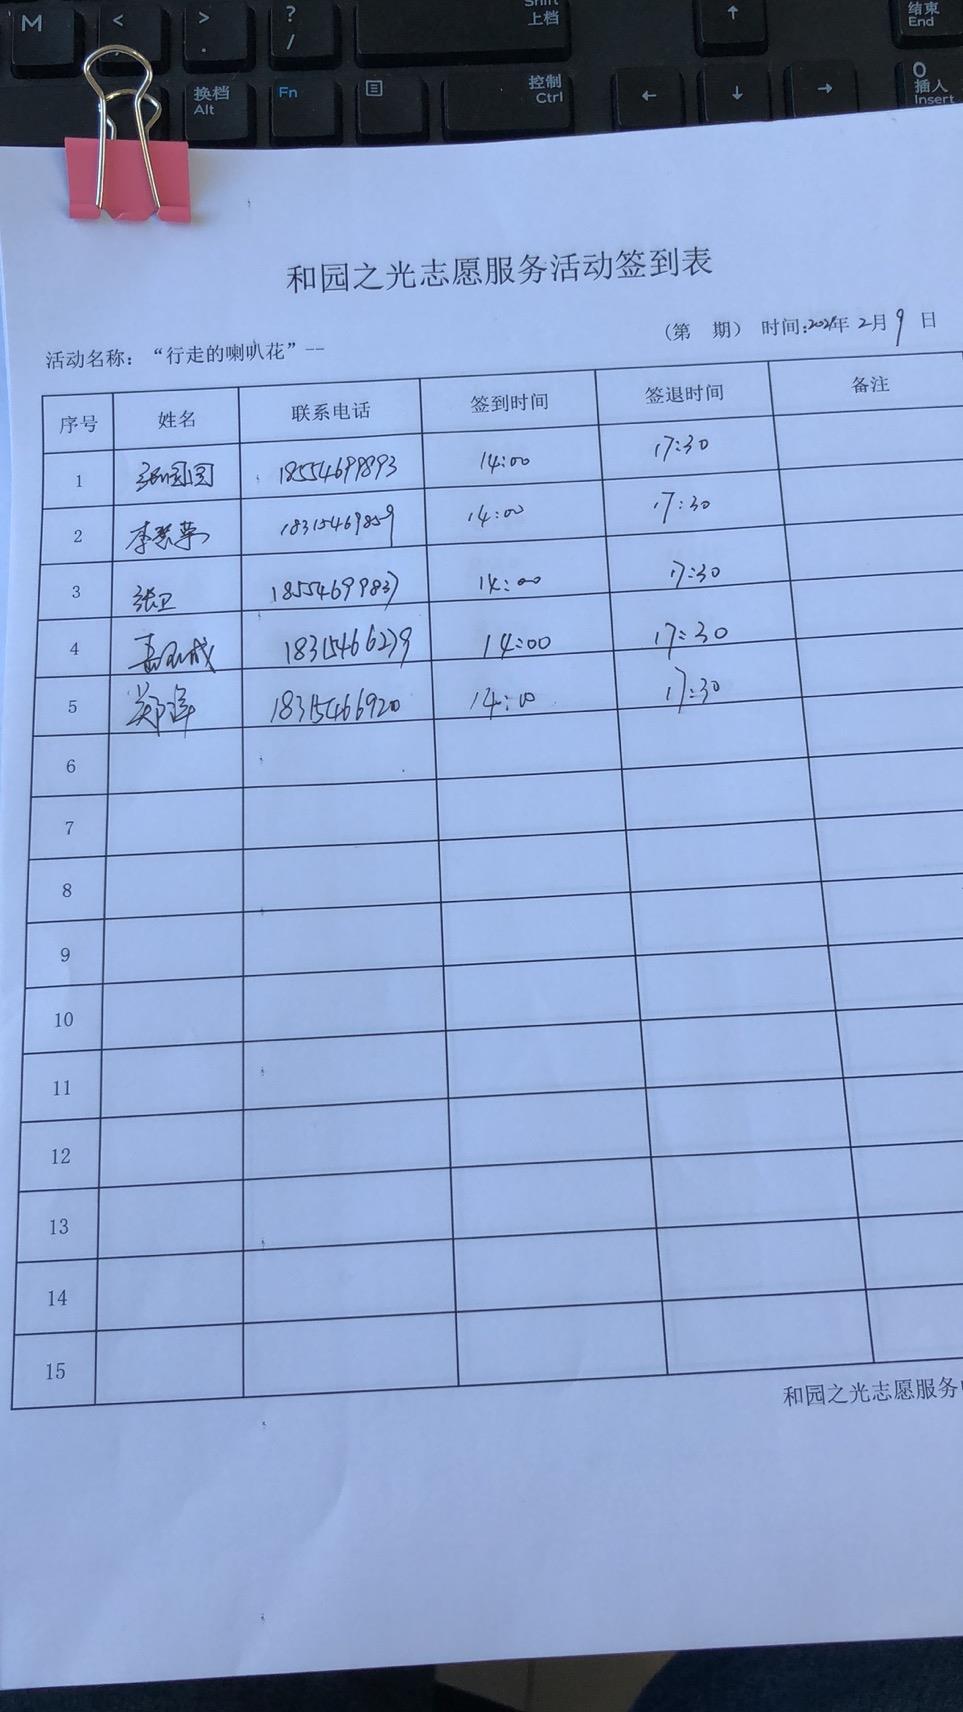 M < > . ? / Shift 上档 ↑ 结束 End
换档 Alt Fn 控制 Ctrl ← ↓ → 0 插入 Insert
和园之光志愿服务活动签到表
(第 期) 时间:2021年 2月 9 日
活动名称：“行走的喇叭花”--
序号 姓名 联系电话 签到时间 签退时间 备注
1 张园园 18554699893 14:00 17:30
2 李慧荣 18315469859 14:00 17:30
3 张卫 18554699837 14:00 17:30
4 18315466279 14:00 17:30
5 郑萍 18315466920 14:10 17:30
6
7
8
9
10
11
12
13
14
15
和园之光志愿服务